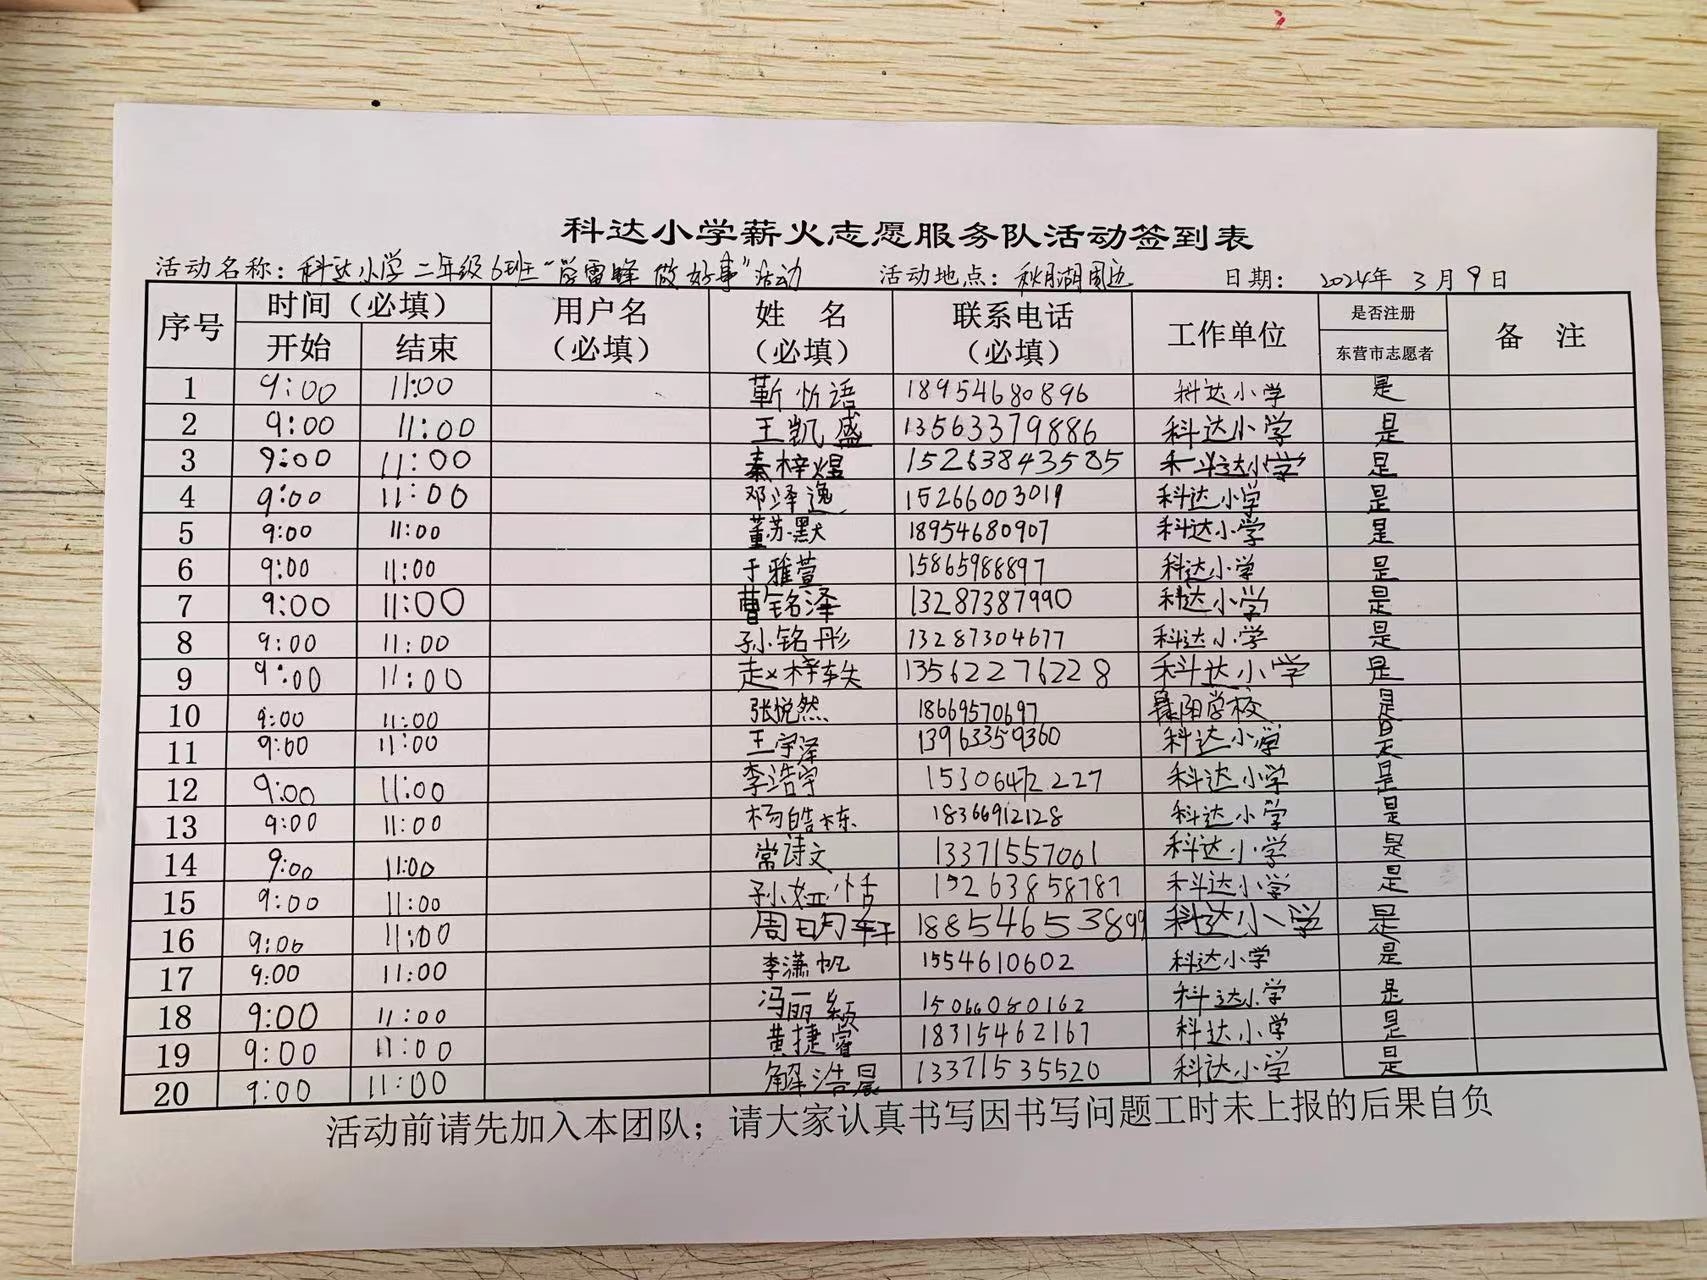 科达小学薪火志愿服务队活动签到表
活动名称：科达小学二年级6班“学雷锋 做好事”活动 活动地点：秋月湖周边 日期：2024年 3月 9日
序号 时间（必填） 用户名（必填） 姓 名（必填） 联系电话（必填） 工作单位 是否注册东营市志愿者 备 注
开始 结束
1 9:00 11:00 靳忻语 18954680896 科达小学 是
2 9:00 11:00 王凯盛 13563379886 科达小学 是
3 9:00 11:00 秦梓煜 15263843585 科达小学 是
4 9:00 11:00 邓泽逸 15266003019 科达小学 是
5 9:00 11:00 董苏默 18954680907 科达小学 是
6 9:00 11:00 于雅萱 15865988897 科达小学 是
7 9:00 11:00 曹铭泽 13287387990 科达小学 是
8 9:00 11:00 孙铭彤 13287304677 科达小学 是
9 9:00 11:00 赵梓轶 13562276228 科达小学 是
10 9:00 11:00 张悦然 18669570697 阳学校 是
11 9:00 11:00 王宇泽 13963359360 科达小学 是
12 9:00 11:00 李浩宇 15306472227 科达小学 是
13 9:00 11:00 杨皓栋 18366912128 科达小学 是
14 9:00 11:00 常诗文 13371557061 科达小学 是
15 9:00 11:00 孙娅恬 15263858787 科达小学 是
16 9:00 11:00 周明轩 18854653899 科达小学 是
17 9:00 11:00 李潇帆 1554610602 科达小学 是
18 9:00 11:00 冯丽颖 15066080162 科达小学 是
19 9:00 11:00 黄捷睿 18315462167 科达小学 是
20 9:00 11:00 解浩晨 13371535520 科达小学 是
活动前请先加入本团队；请大家认真书写因书写问题工时未上报的后果自负